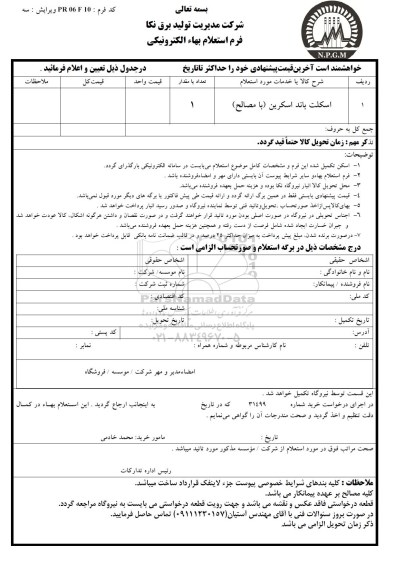 بسمه تعالی
کد فرم : PR 06 F 10 ویرایش : سه
شرکت مدیریت تولید برق نکا
فرم استعلام بهاء الکترونیکی
N.P.G.M
خواهشمند است آخرین قیمت پیشنهادی خود را حداکثر تا تاریخ درجدول ذیل تعیین و اعلام فرمائید .
ردیف شرح کالا یا خدمات مورد استعلام تعداد یا مقدار قیمت واحد قیمت کل ملاحظات
۱ اسکلت باند اسکرین (با مصالح) ۱
جمع کل به حروف:
تذکر مهم : زمان تحویل کالا حتماً قید گردد.
توضیحات:
۱- اسکن تکمیل شده این فرم و مشخصات کامل موضوع استعلام می‌بایست در سامانه الکترونیکی بارگذرای گردد.
۲- فرم استعلام بهاءو سایر شرایط پیوست آن بایستی دارای مهر و امضاءفروشنده باشد .
۳- محل تحویل کالا انبار نیروگاه نکا بوده و هزینه حمل بعهده فروشنده می‌باشد.
۴- قیمت پیشنهادی بایستی فقط در همین برگه ارائه گردد و ارائه قیمت طی پیش فاکتور یا برگه های دیگر مورد قبول نمی‌باشد.
۵- بهای‌کالاپس‌ازاخذ صورتحساب ،تحویل‌وتائید فنی توسط نماینده نیروگاه و صدور رسید انبار پرداخت خواهد شد
۶- اجناس تحویلی در نیروگاه در صورت اصلی بودن مورد تائید قرار خواهند گرفت و در صورت نقصان و داشتن هرگونه اشکال، کالا عودت خواهد شد
و جبران خسارت ایجاد شده شامل فرصت از دست رفته و همچنین هزینه حمل بعهده فروشنده می‌باشد .
۷-درصورت برنده شدن، مبلغ پیش پرداخت به میزان حداکثر ۲۵ درصد و در قالب ضمانت نامه بانکی قابل پرداخت خواهد بود .
درج مشخصات ذیل در برگه استعلام و صورتحساب الزامی است :
اشخاص حقیقی اشخاص حقوقی
نام و نام خانوادگی : نام موسسه/ شرکت :
نام فروشنده / پیمانکار: شماره ثبت شرکت :
کد ملی: کد اقتصادی :
شناسه ملی:
تاریخ تکمیل : تاریخ تحویل :
آدرس: کد پستی :
تلفن : نام کارشناس مربوطه و شماره همراه : نمابر :
ParsNamadData
۰۲۱-۸۸۳۴۹۶۷۰-۵
امضاءمدیر و مهر شرکت / موسسه / فروشگاه
این قسمت توسط نیروگاه تکمیل خواهد شد .
در اجرای درخواست خرید شماره ۳۱۴۹۹ که در تاریخ به اینجانب ارجاع گردید . این استعلام بهاء در کمال
دقت تنظیم و اخذ گردید و صحت مندرجات آن را گواهی می‌نمایم .
تاریخ : مامور خرید: محمد خادمی
صحت مراتب فوق در مورد استعلام از شرکت / مؤسسه مذکور مورد تائید میباشد .
رئیس اداره تدارکات
ملاحظات : کلیه بندهای شرایط خصوصی پیوست جزء لاینفک قرارداد ساخت میباشد.
کلیه مصالح بر عهده پیمانکار می باشد.
قطعه درخواستی فاقد عکس و نقشه می باشد و جهت رویت قطعه درخواستی می بایست به نیروگاه مراجعه گردد.
در صورت بروز سئوالات فنی با آقای مهندس استبان(۰۹۱۱۱۲۳۰۱۵۷) تماس حاصل فرمایید.
ذکر زمان تحویل الزامی می باشد